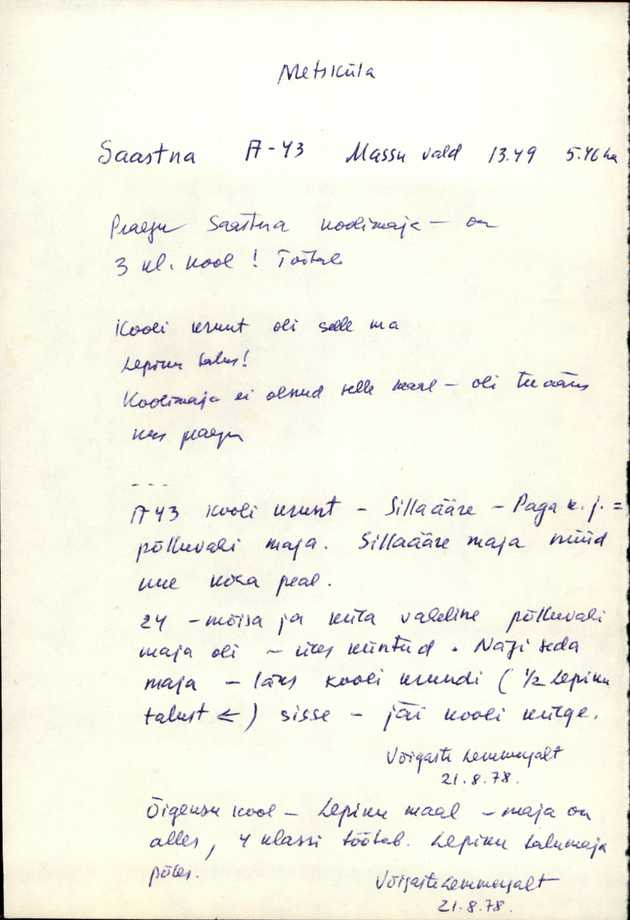 Metsküla
Saastna A-43 Massu vald 13.49 5.46 ha
Praegu Saastna koolimaja – on
3 kl. kool! Töötab
Kooli krunt oli selle ma
Lepiku talus!
Koolimaja ei olnud selle maal – oli tee ääres
kus praegu
---
A 43 kooli krunt – Sillaääre – Paga k. j. =
põlluvahi maja. Sillaääre maja nüüd
ue koha peal.
24 – mõisa ja küla vaheline põlluvahi
maja oli – üles küntud. Nägi seda
maja – läks kooli krundi (1/2 Lepiku
talust ⇐) sisse – jäi kooli külge.
Võigaste Lemmergalt
21.8.78.
Õigeusu kool – Lepiku maal – maja on
alles, 4 klassi töötab. Lepiku talumaja
põles.
Võigaste Lemmergalt
21.8.78.